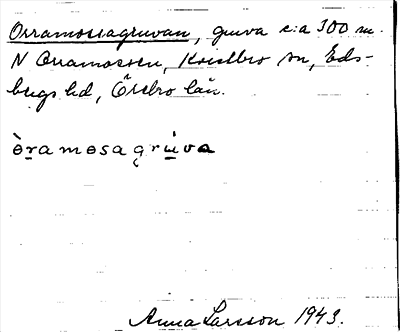 Orramossagruvan, gruva c:a 300 m.
N Orramossen, Kvistbro sn, Eds-
bergs hd, Örebro län.
òramosagrùva
Anna Larsson 1943.